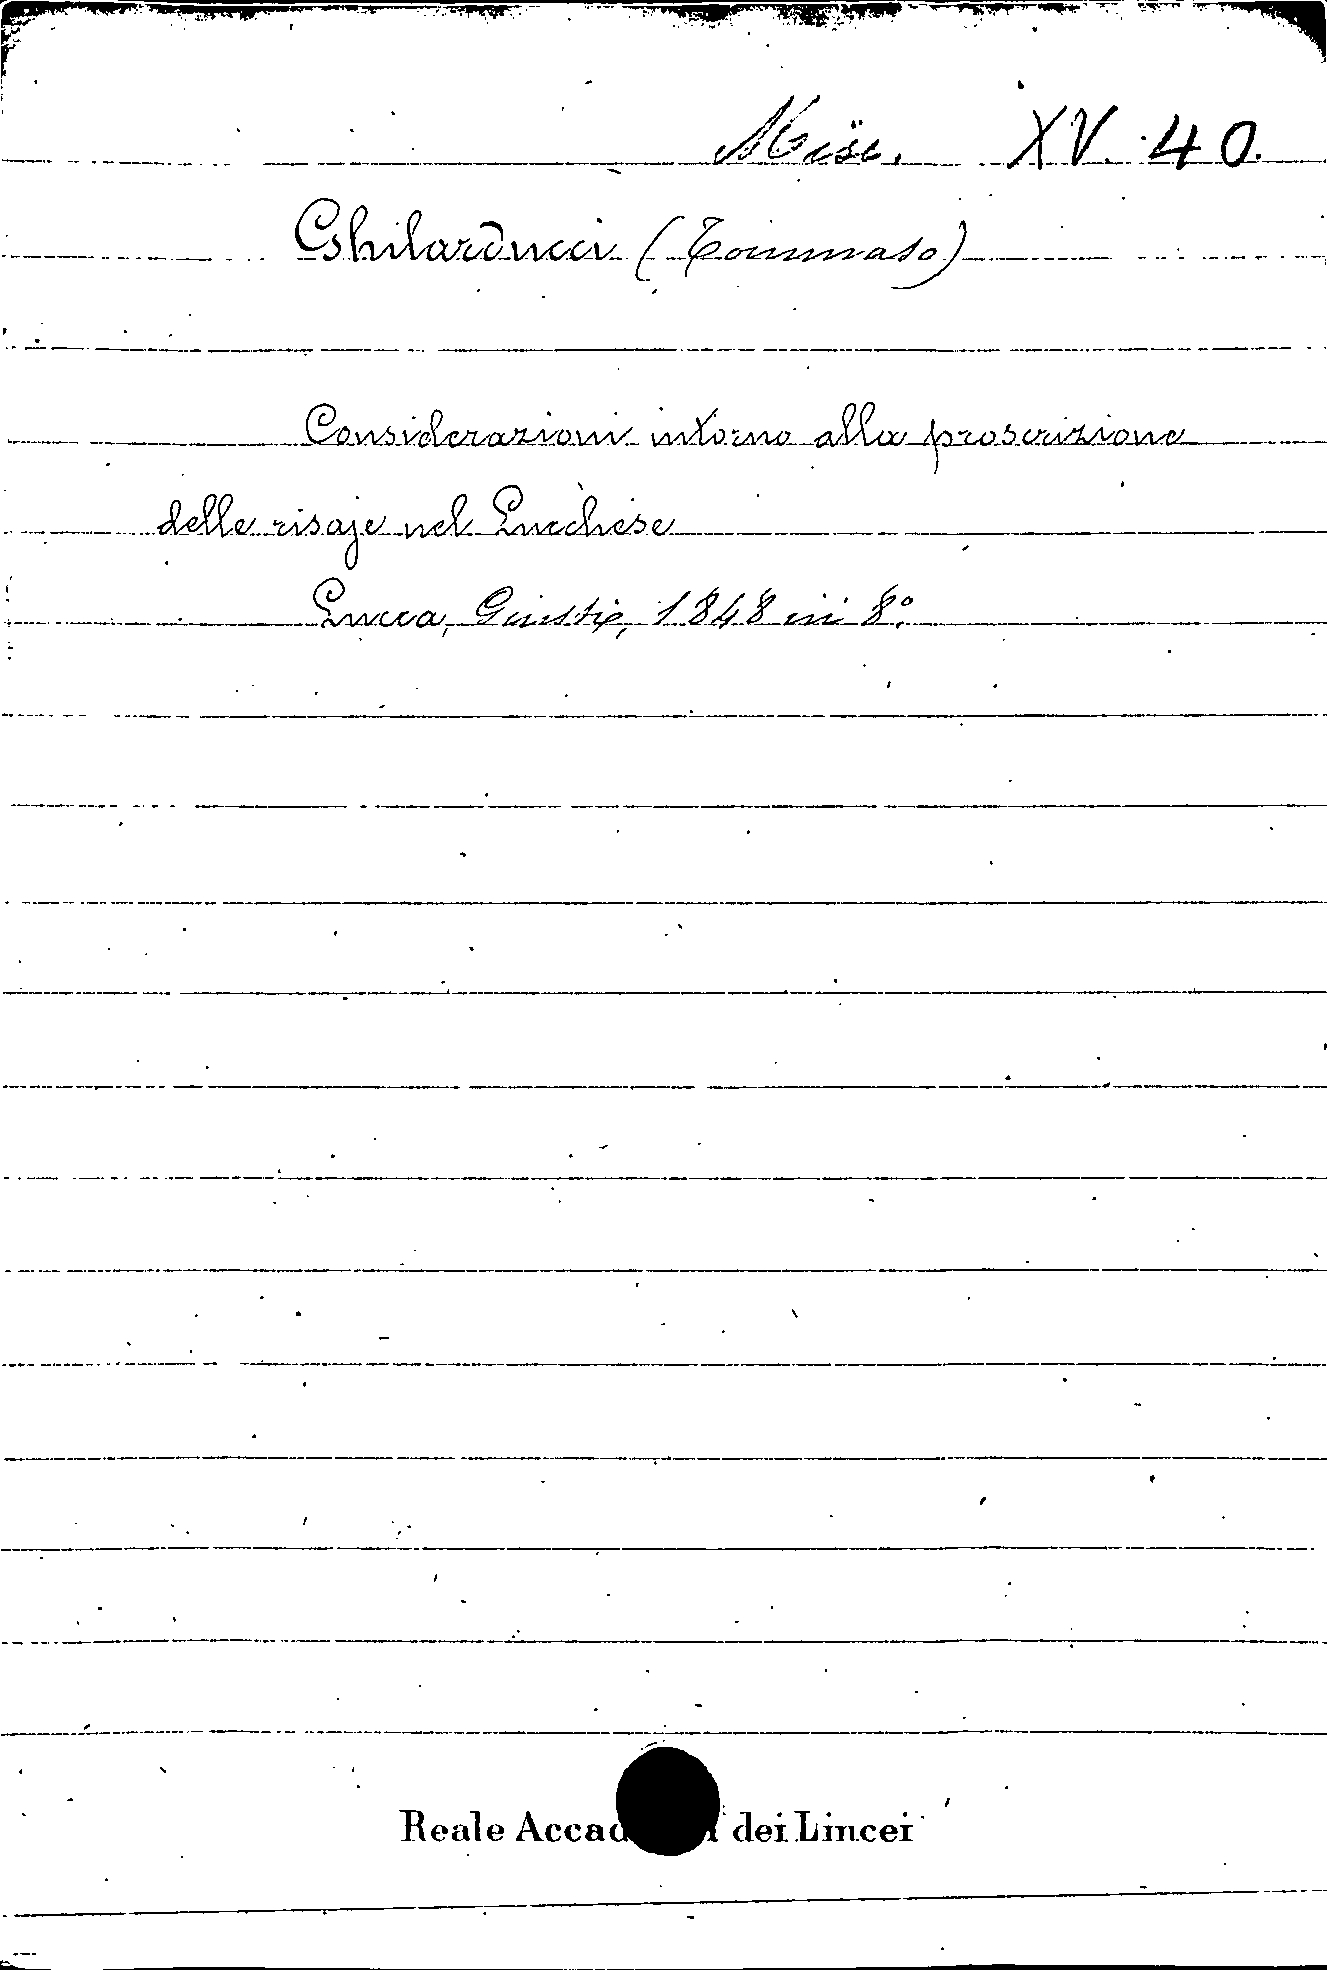 Misc. XV. 40.
Ghilarducci (Tommaso)
Considerazioni intorno alla proscrizione
delle risaje nel Lucchese
Lucca, Giusti, 1848 in 8º.
Reale Accad dei Lincei